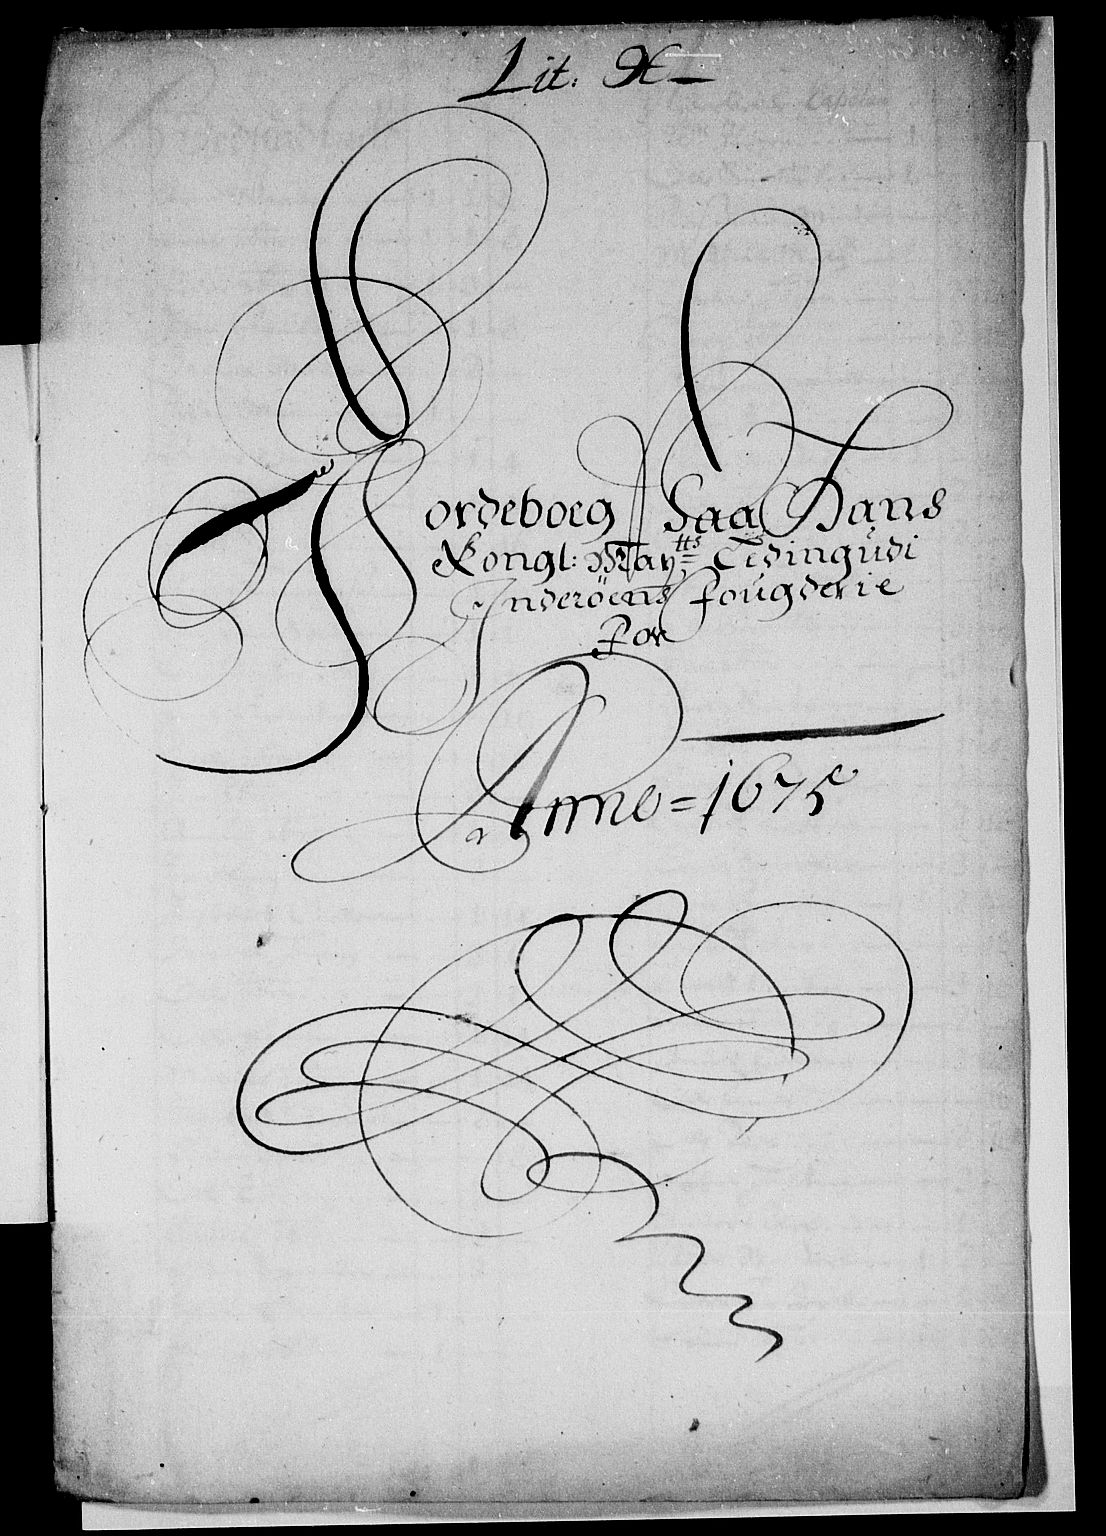 Lit: A
Jordeboeg Paa Hans
Kongl: May tts Tidingudi
Inderöens fougderie
for
Anno = 1675